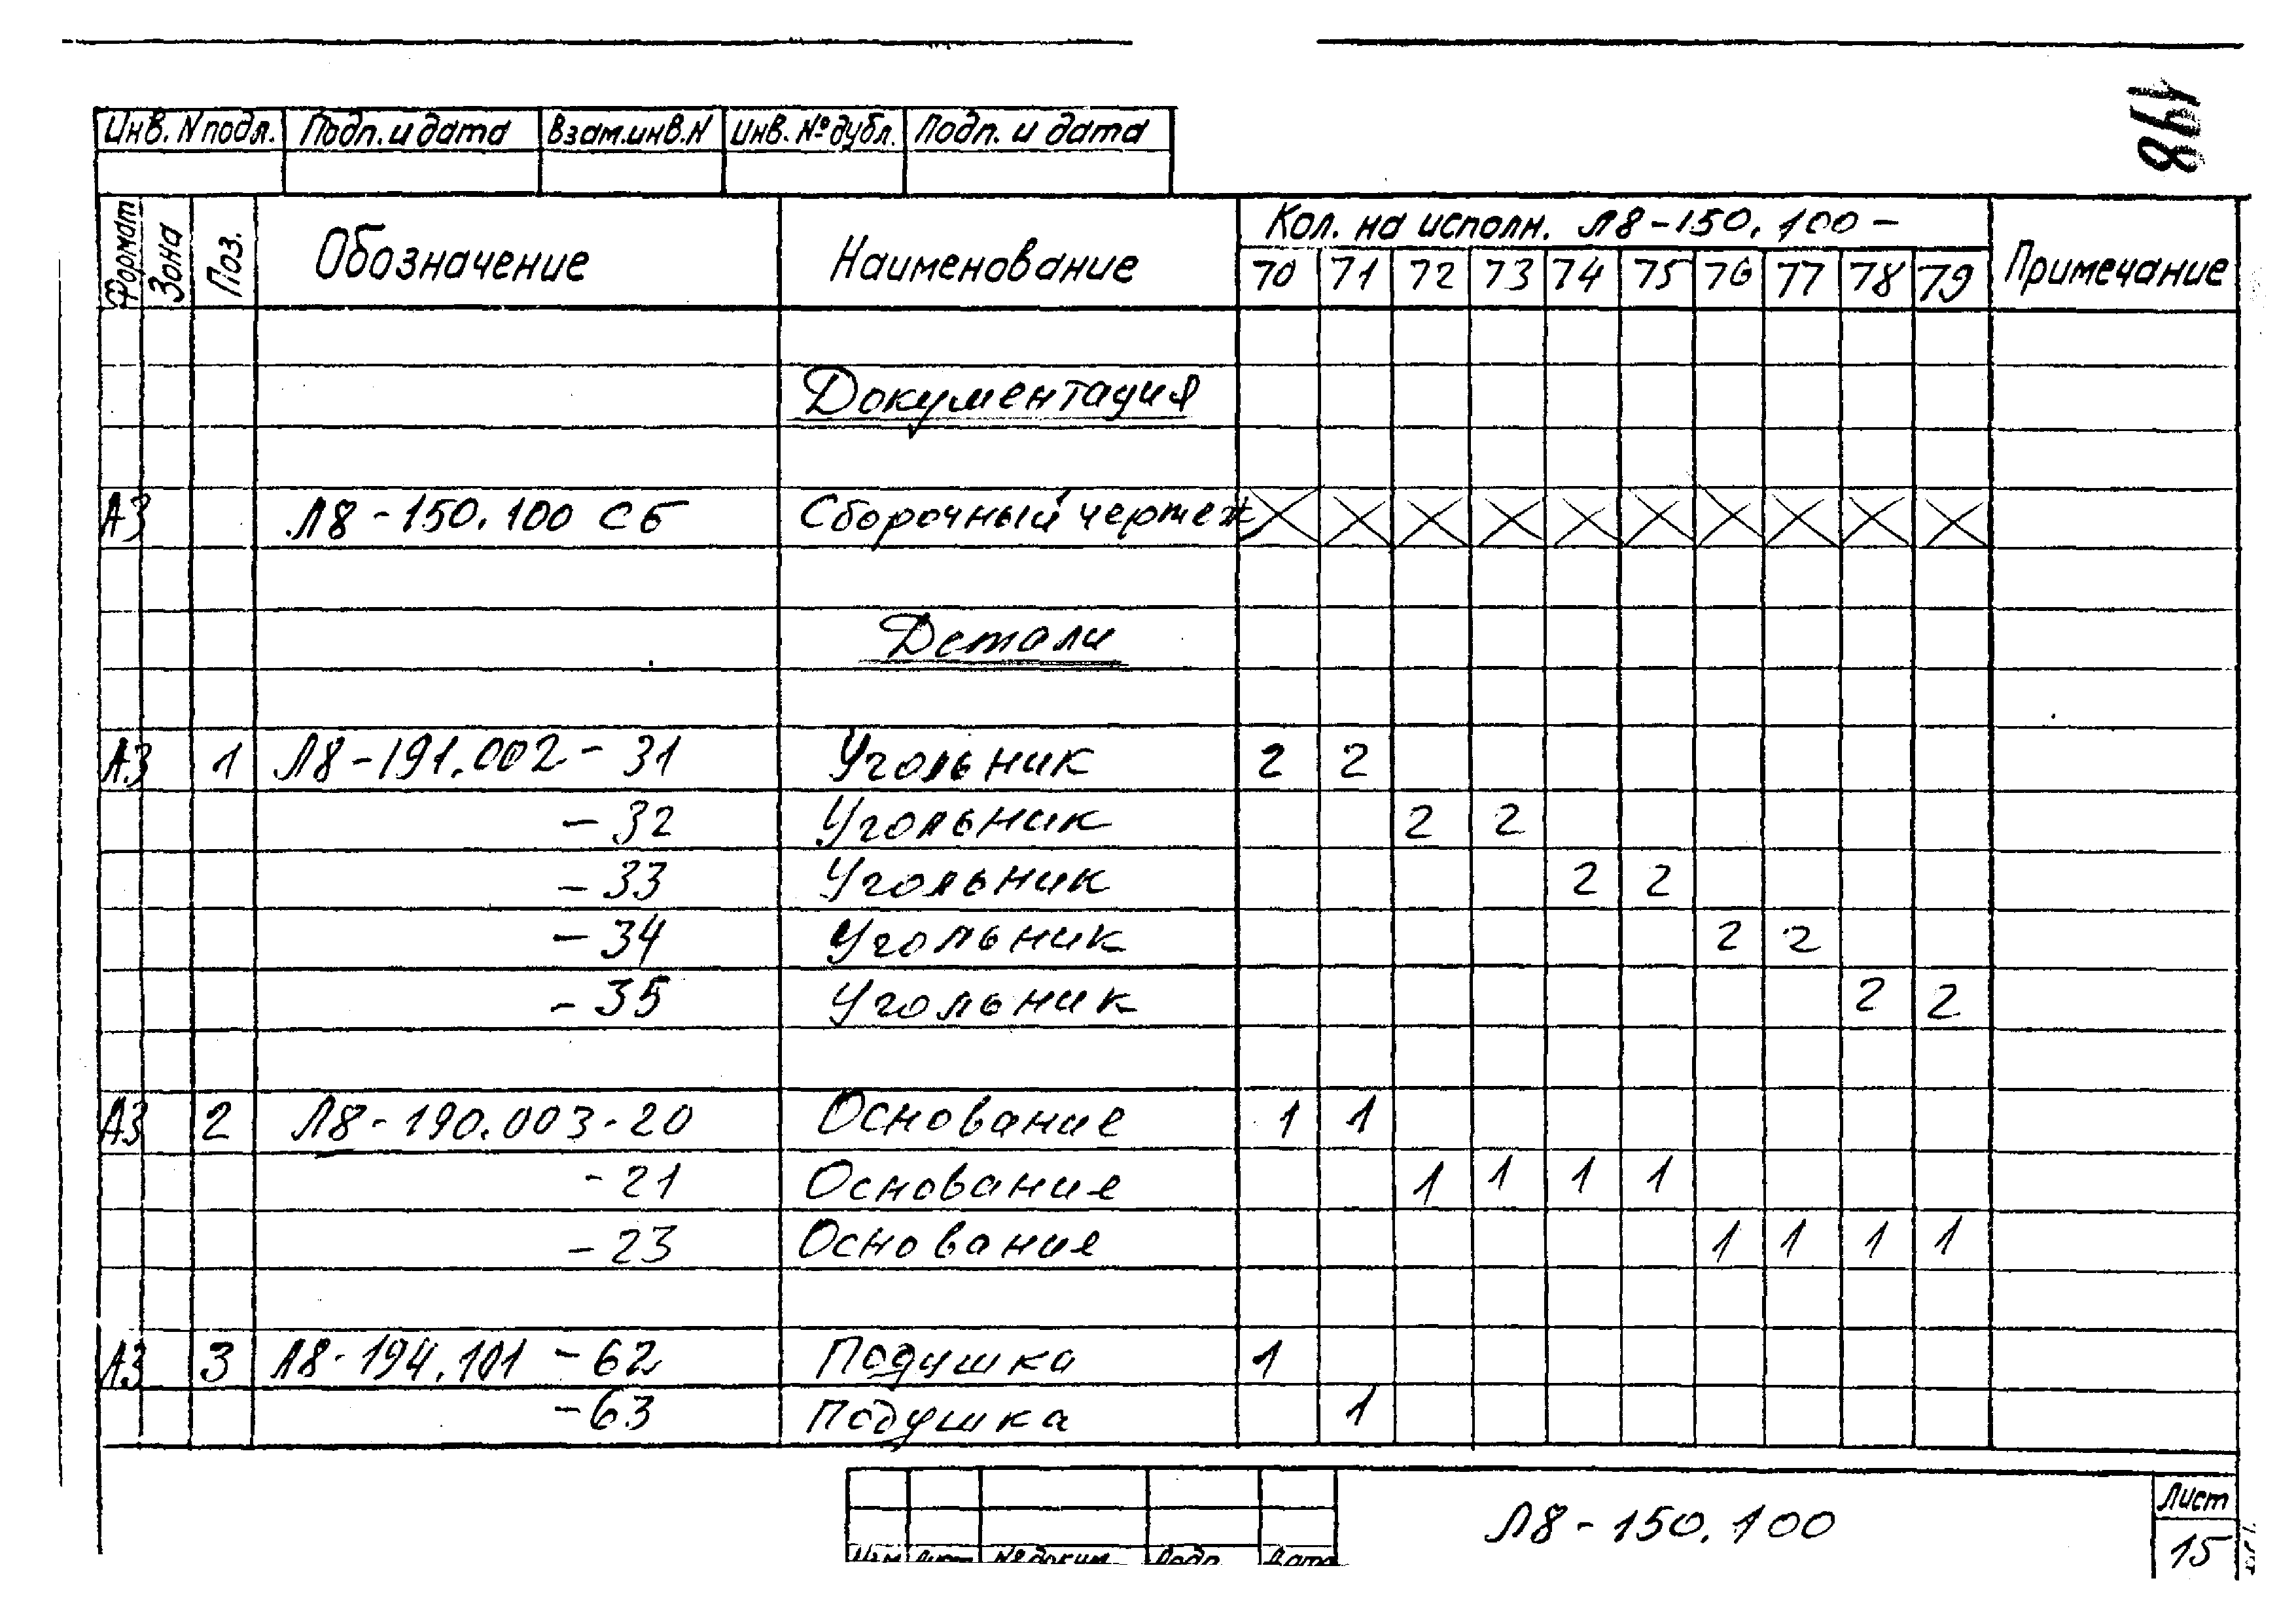 Инв. N подл. Подп. и дата Взам.инв.N Инв. №дубл. Подп. и дата
Формат Зона Поз. Обозначение Наименование Кол. на исполн. Л8-150.100- Примечание
70 71 72 73 74 75 76 77 78 79
Документация
А3 Л8-150.100 СБ Сборочный чертеж
Детали
А3 1 Л8-191.002-31 Угольник 2 2
-32 Угольник 2 2
-33 Угольник 2 2
-34 Угольник 2 2
-35 Угольник 2 2
А3 2 Л8-190.003-20 Основание 1 1
-21 Основание 1 1 1 1
-23 Основание 1 1 1 1
А3 3 Л8-194.101-62 Подушка 1
-63 Подушка 1
Л8-150.100
Лист
15
Изм Лист №докум. Подп. Дата